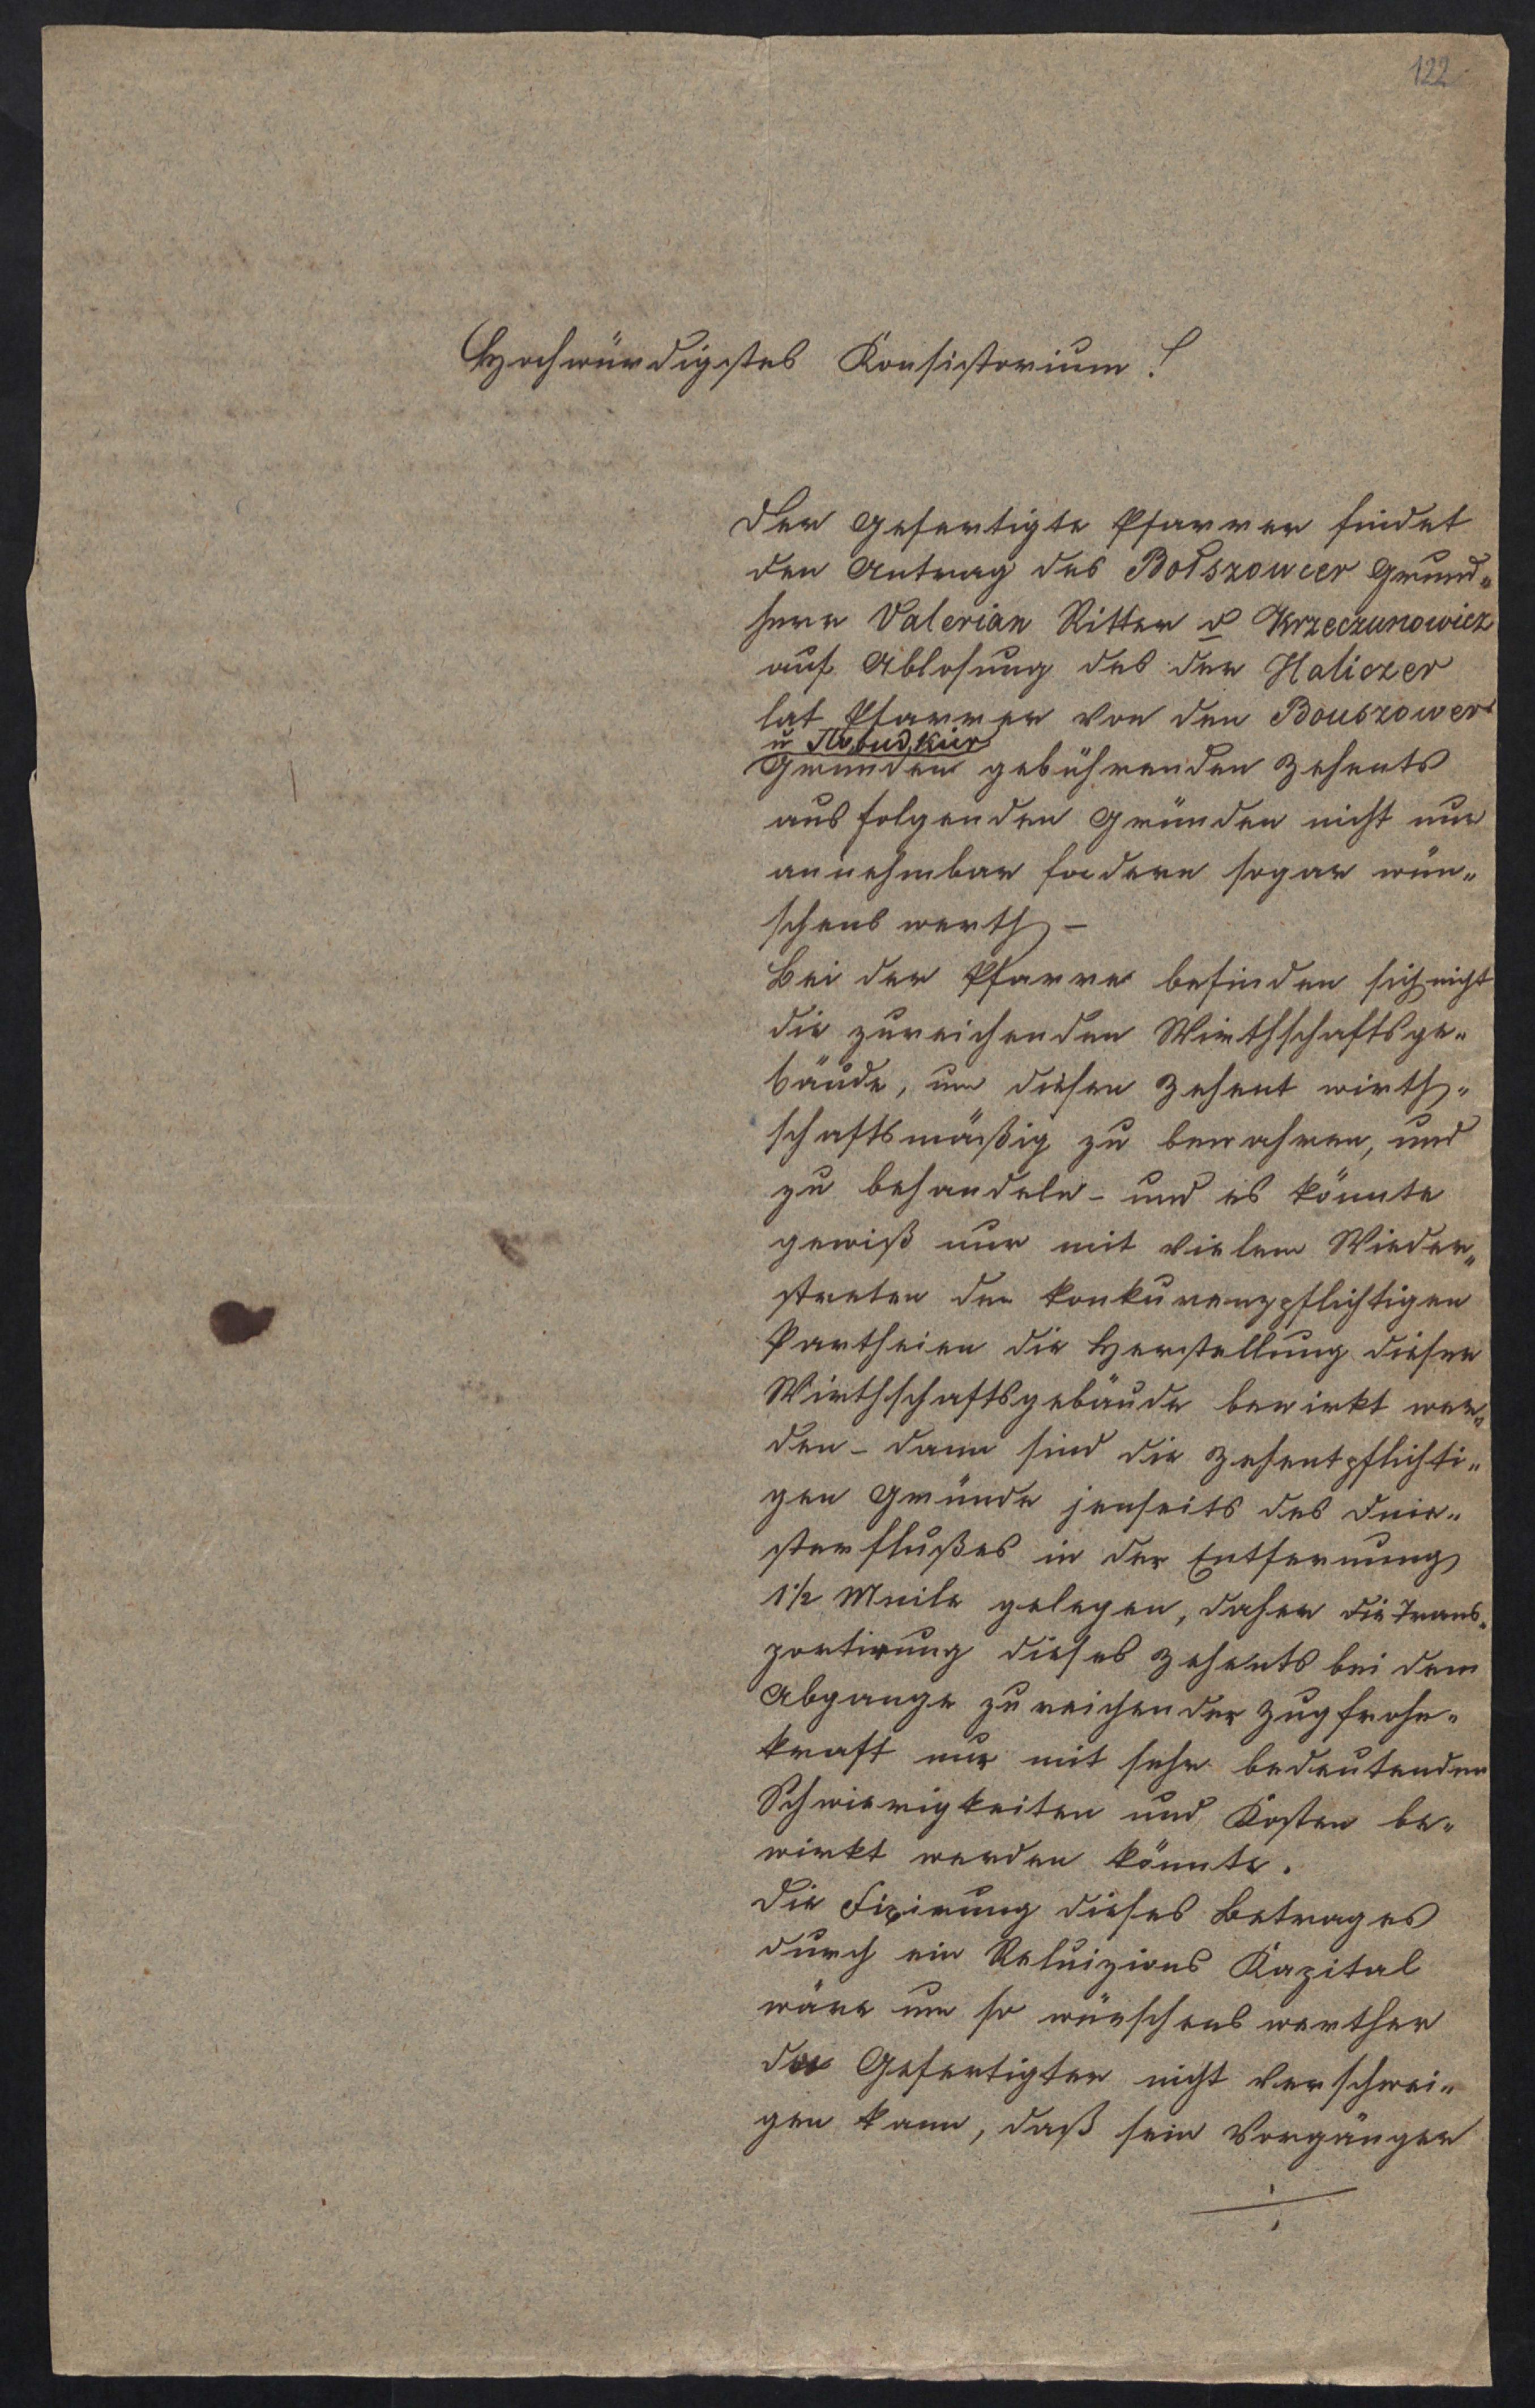 122
Hochwürdigstes Konsistorium!
Der Gefertigte Pfarrer findet
den Antrag des Bołszowcer Grund„
herr Valerian Ritter v Krzeczunowicz
auf Ablosung des der Haliczer
lat Pfarrer von den Bouszower
u
Gründen gebührenden Zehents
aus folgenden Gründen nicht nur
annehmbar sondern sogar wün„
schens werth –
Bei der Pfarre befinden sich nicht
die zureichenden Wirthschaftsge„
bäude, um diesen Zehent wirth„
schaftsmäßig zu bewahren, und
zu behandeln – und es könnte
gewiß nur mit vielem Wieder„
streten der konkurenzpflichtigen
Partheien die Herstellung dieser
Wirthschaftsgebäude bewirkt wer„
den – dann sind die zehentpflichti„
gen Gründe jenseits des Dnie„
sterflußes in der Entfernung
1½ Meile gelegen, daher die Trans„
portirung dieses Zehents bei dem
Abgange zureichender Zugfrohn„
kraft nur mit sehr bedeutenden
Schwierigkeiten und Kosten be„
wirkt werden könnte.
Die Fixirung dieses Betrages
durch ein Reluizions Kapital
wäre um so wünschens werther
da Gefertigter nicht verschwei„
gen kann, daß sein Vorgänger